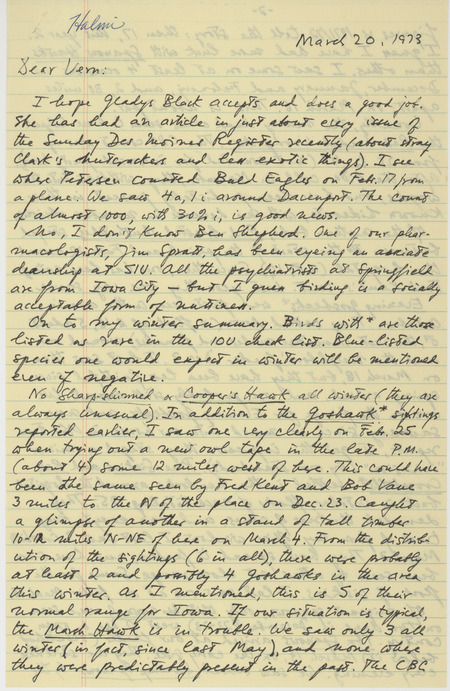 Halmi
March 20, 1973
Dear Vern:
I hope Gladys Black accepts and does a good job.
She has had an article in just about every issue of
the Sunday Des Moines Register recently (about stray
Clark's nutcrackers and less exotic things). I see
where Petersen counted Bald Eagles on Feb. 17 from
a plane. We saw 4a, 1i around Davenport. The count
of almost 1000, with 30% i, is good news.
No, I don't know Ben Shepherd. One of our phar-
macologists, Jim Spratt, has been eyeing an associate
deanship at SIU. All the psychiatrists at Springfield
are from Iowa City – but I guess birding is a socially
acceptable form of nuttiness.
On to my winter summary. Birds with * are those
listed as rare in the IOU check list. Blue-listed
species one would expect in winter will be mentioned
even if negative.
No Sharp-shinned or Cooper's Hawk all winter (they are
always unusual). In addition to the Goshawk* sightings
reported earlier, I saw one very clearly on Feb. 25
when trying out a new owl tape in the late P.M.
(about 4) some 12 miles west of here. This could have
been the same seen by Fred Kent and Bob Vane
3 miles to the N of the place on Dec. 23. Caught
a glimpse of another in a stand of tall timber
10-12 miles N-NE of here on March 4. From the distrib-
ution of the sightings (6 in all), there were probably
at least 2 and possibly 4 Goshawks in the area
this winter. As I mentioned, this is S of their
normal range for Iowa. If our situation is typical,
the Marsh Hawk is in trouble. We saw only 3 all
winter (in fact, since last May), and none where
they were predictably present in the past. The CBC